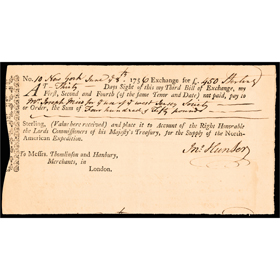 No. 10 New York June 8th 1756 Exchange for £450 Sterling
AT Thirty Days Sight of this my Third Bill of Exchange, my
First, Second and Fourth (of the same Tenor and Date) not paid, pay to
Mr Joseph for of west Jersey Society
or Order, the Sum of Four hundred & fifty pounds
Sterling, (Value here received) and place it to Account of the Right Honorable
the Lords Commissioners of his Majesty's Treasury, for the Supply of the North-
American Expedition.
To Messrs. Thomlinson and Hanbury,
Merchants, in
London.
Jno. Hunter